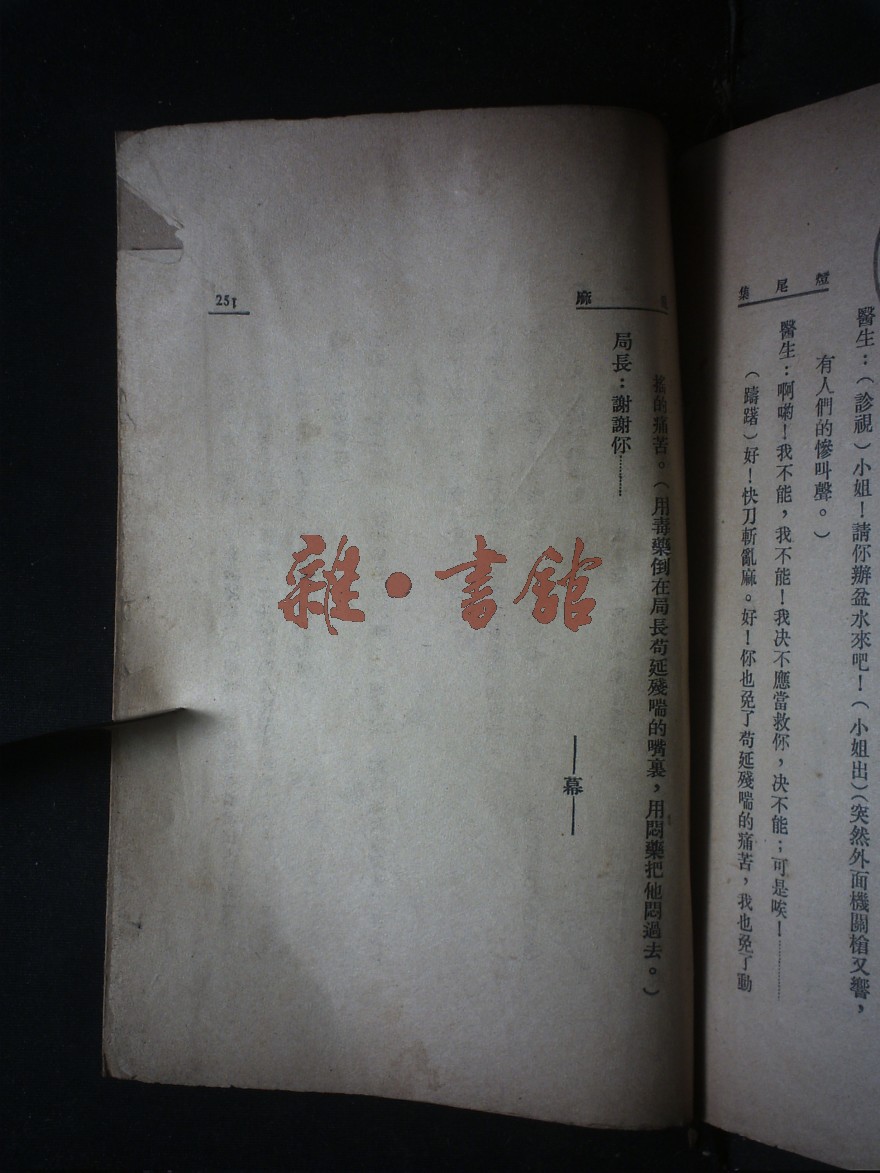 集尾爝
醫生：（診視）小姐！請你辦盆水來吧！（小姐出）（突然外面機關槍又響，
有人們的慘叫聲。）
醫生：啊喲！我不能，我不能！我決不應當救你，決不能；可是唉！…………
（躊躇）好！快刀斬亂麻。好！你也免了苟延殘喘的痛苦，我也免了動
麻
搖的痛苦。（用毒藥倒在局長苟延殘喘的嘴裏，用悶藥把他悶過去。）
局長：謝謝你…………
——幕——
251
雜·書館